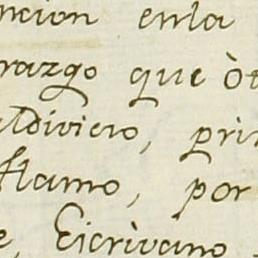 ncion enla
razgo que òt
aldivieio, prim
stamo, por
e, Escrivano